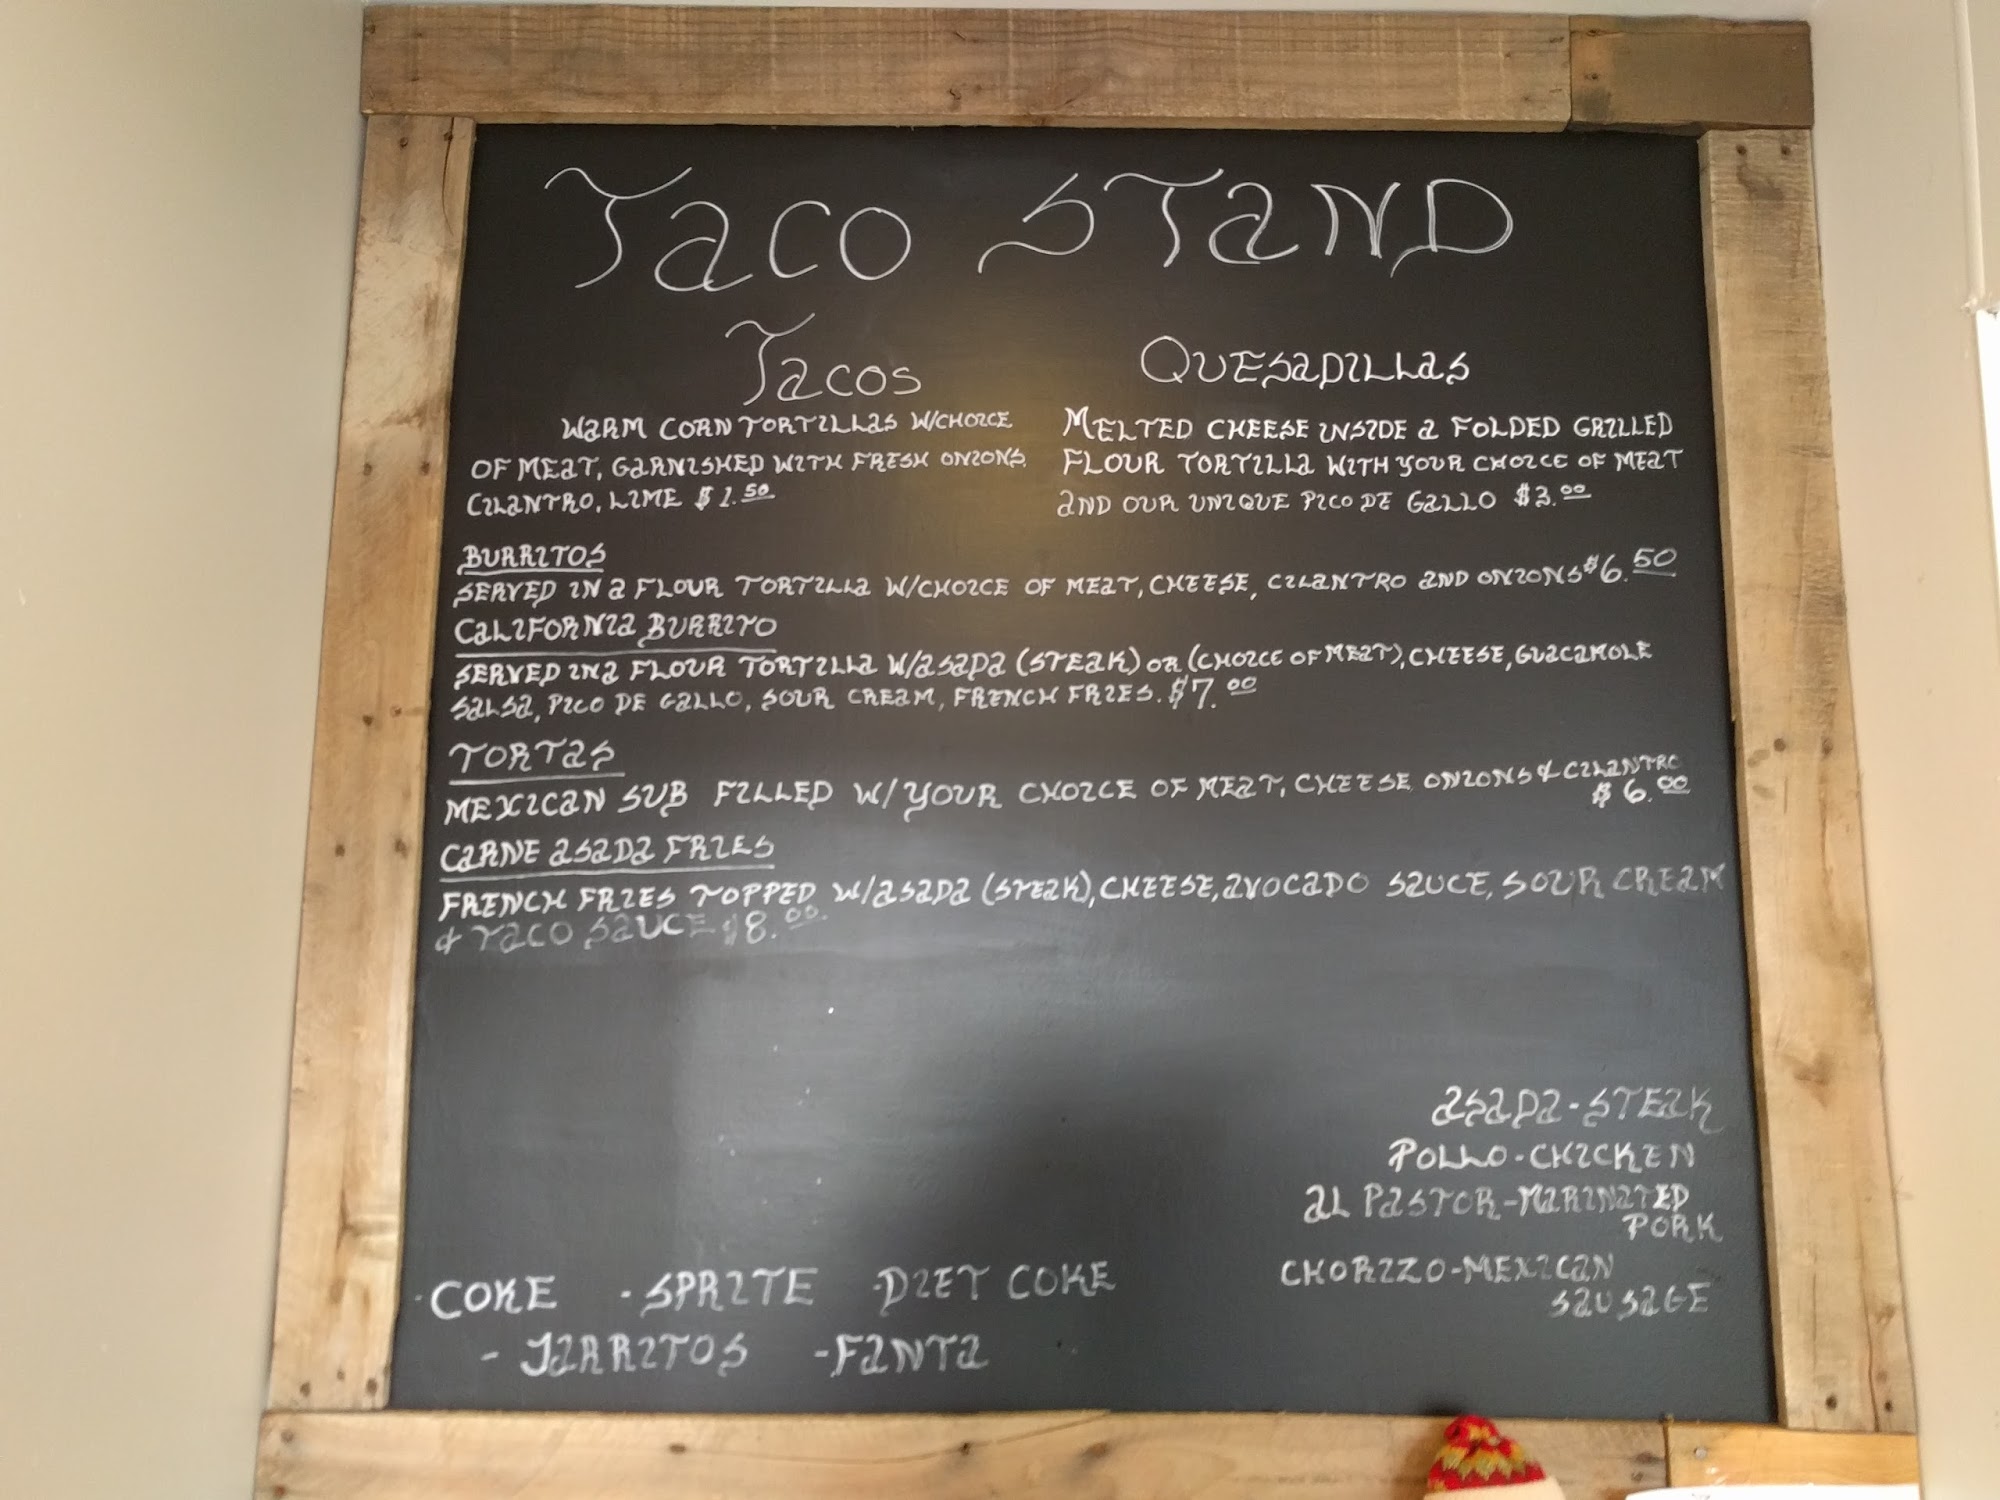 TACO STAND
TACOS
WARM CORN TORTILLAS W/CHOICE
OF MEAT, GARNISHED WITH FRESH ONIONS,
CILANTRO, LIME $1.50
QUESADILLAS
MELTED CHEESE INSIDE A FOLDED GRILLED
FLOUR TORTILLA WITH YOUR CHOICE OF MEAT
AND OUR UNIQUE PICO DE GALLO $3.00
BURRITOS
SERVED IN A FLOUR TORTILLA W/CHOICE OF MEAT, CHEESE, CILANTRO AND ONIONS $6.50
CALIFORNIA BURRITO
SERVED IN A FLOUR TORTILLA W/ASADA (STEAK) OR (CHOICE OF MEAT), CHEESE, GUACAMOLE
SALSA, PICO DE GALLO, SOUR CREAM, FRENCH FRIES. $7.00
TORTAS
MEXICAN SUB FILLED W/YOUR CHOICE OF MEAT, CHEESE ONIONS & CILANTRO
$6.00
CARNE ASADA FRIES
FRENCH FRIES TOPPED W/ASADA (STEAK), CHEESE, AVOCADO SAUCE, SOUR CREAM
& TACO SAUCE $8.00.
ASADA-STEAK
POLLO-CHICKEN
AL PASTOR-MARINATED
PORK
CHORIZZO-MEXICAN
SAUSAGE
-COKE -SPRITE -DIET COKE
-JARRITOS -FANTA